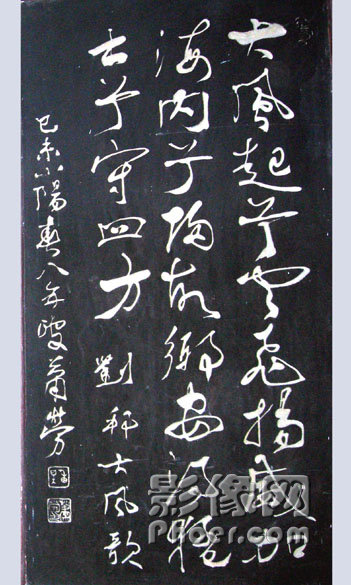 大風起兮雲飛揚威加
海内兮歸故鄉安得猛
士兮守四方 劉邦大風歌
己未小陽春八叟蕭勞
影像网
Phoer.com